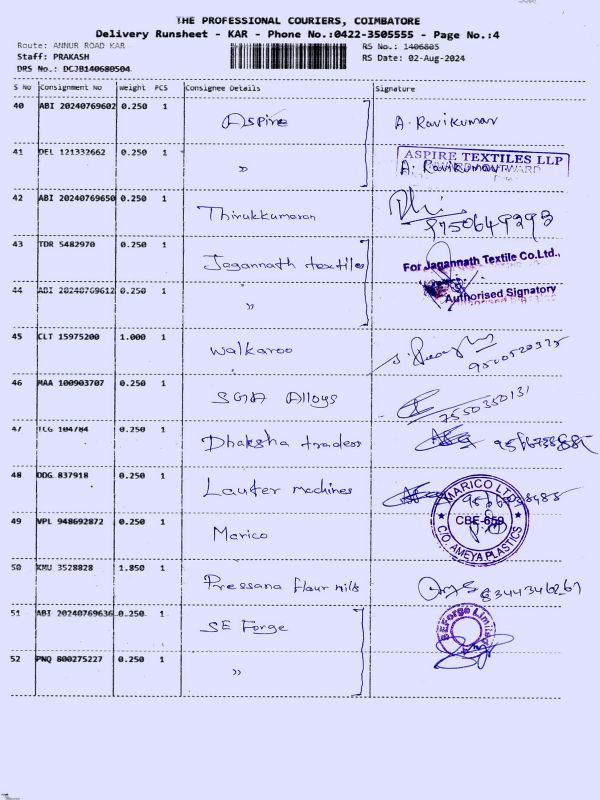 THE PROFESSIONAL COURIERS, COIMBATORE
Delivery Runsheet - KAR - Phone No.:0422-3505555 - Page No.:4
Route: ANNUR ROAD KAR RS No.: 1406805
Staff: PRAKASH RS Date: 02-Aug-2024
DRS No.: DCJB140680504
S No Consignment No Weight PCS Consignee Details Signature
40 ABI 20240769602 0.250 1 Aspire A. Ravikumar
41 DEL 121332662 0.250 1 " ASPIRE TEXTILES LLP
A. Ravikumar
42 ABI 20240769650 0.250 1 Thirukkumaran
9750649293
43 TDR 5482970 0.250 1 Jagannath textiles For Jagannath Textile Co.Ltd.,
44 ABI 20240769612 0.250 1 " Authorised Signatory
45 CLT 15975200 1.000 1 Walkaroo
46 MAA 100903707 0.250 1 SGA Alloys 7550350131
47 TCG 104784 0.250 1 Dhaksha traders
48 DDG 837918 0.250 1 Laufer machines
49 VPL 948692872 0.250 1 Marico MARICO LTD
CBE-659
C/O AMEYA PLASTICS
50 KMU 3528828 1.850 1 Pressana flour mills 8344346267
51 ABI 20240769636 0.250 1 SE Forge SEForge Limited
52 PNQ 800275227 0.250 1 "